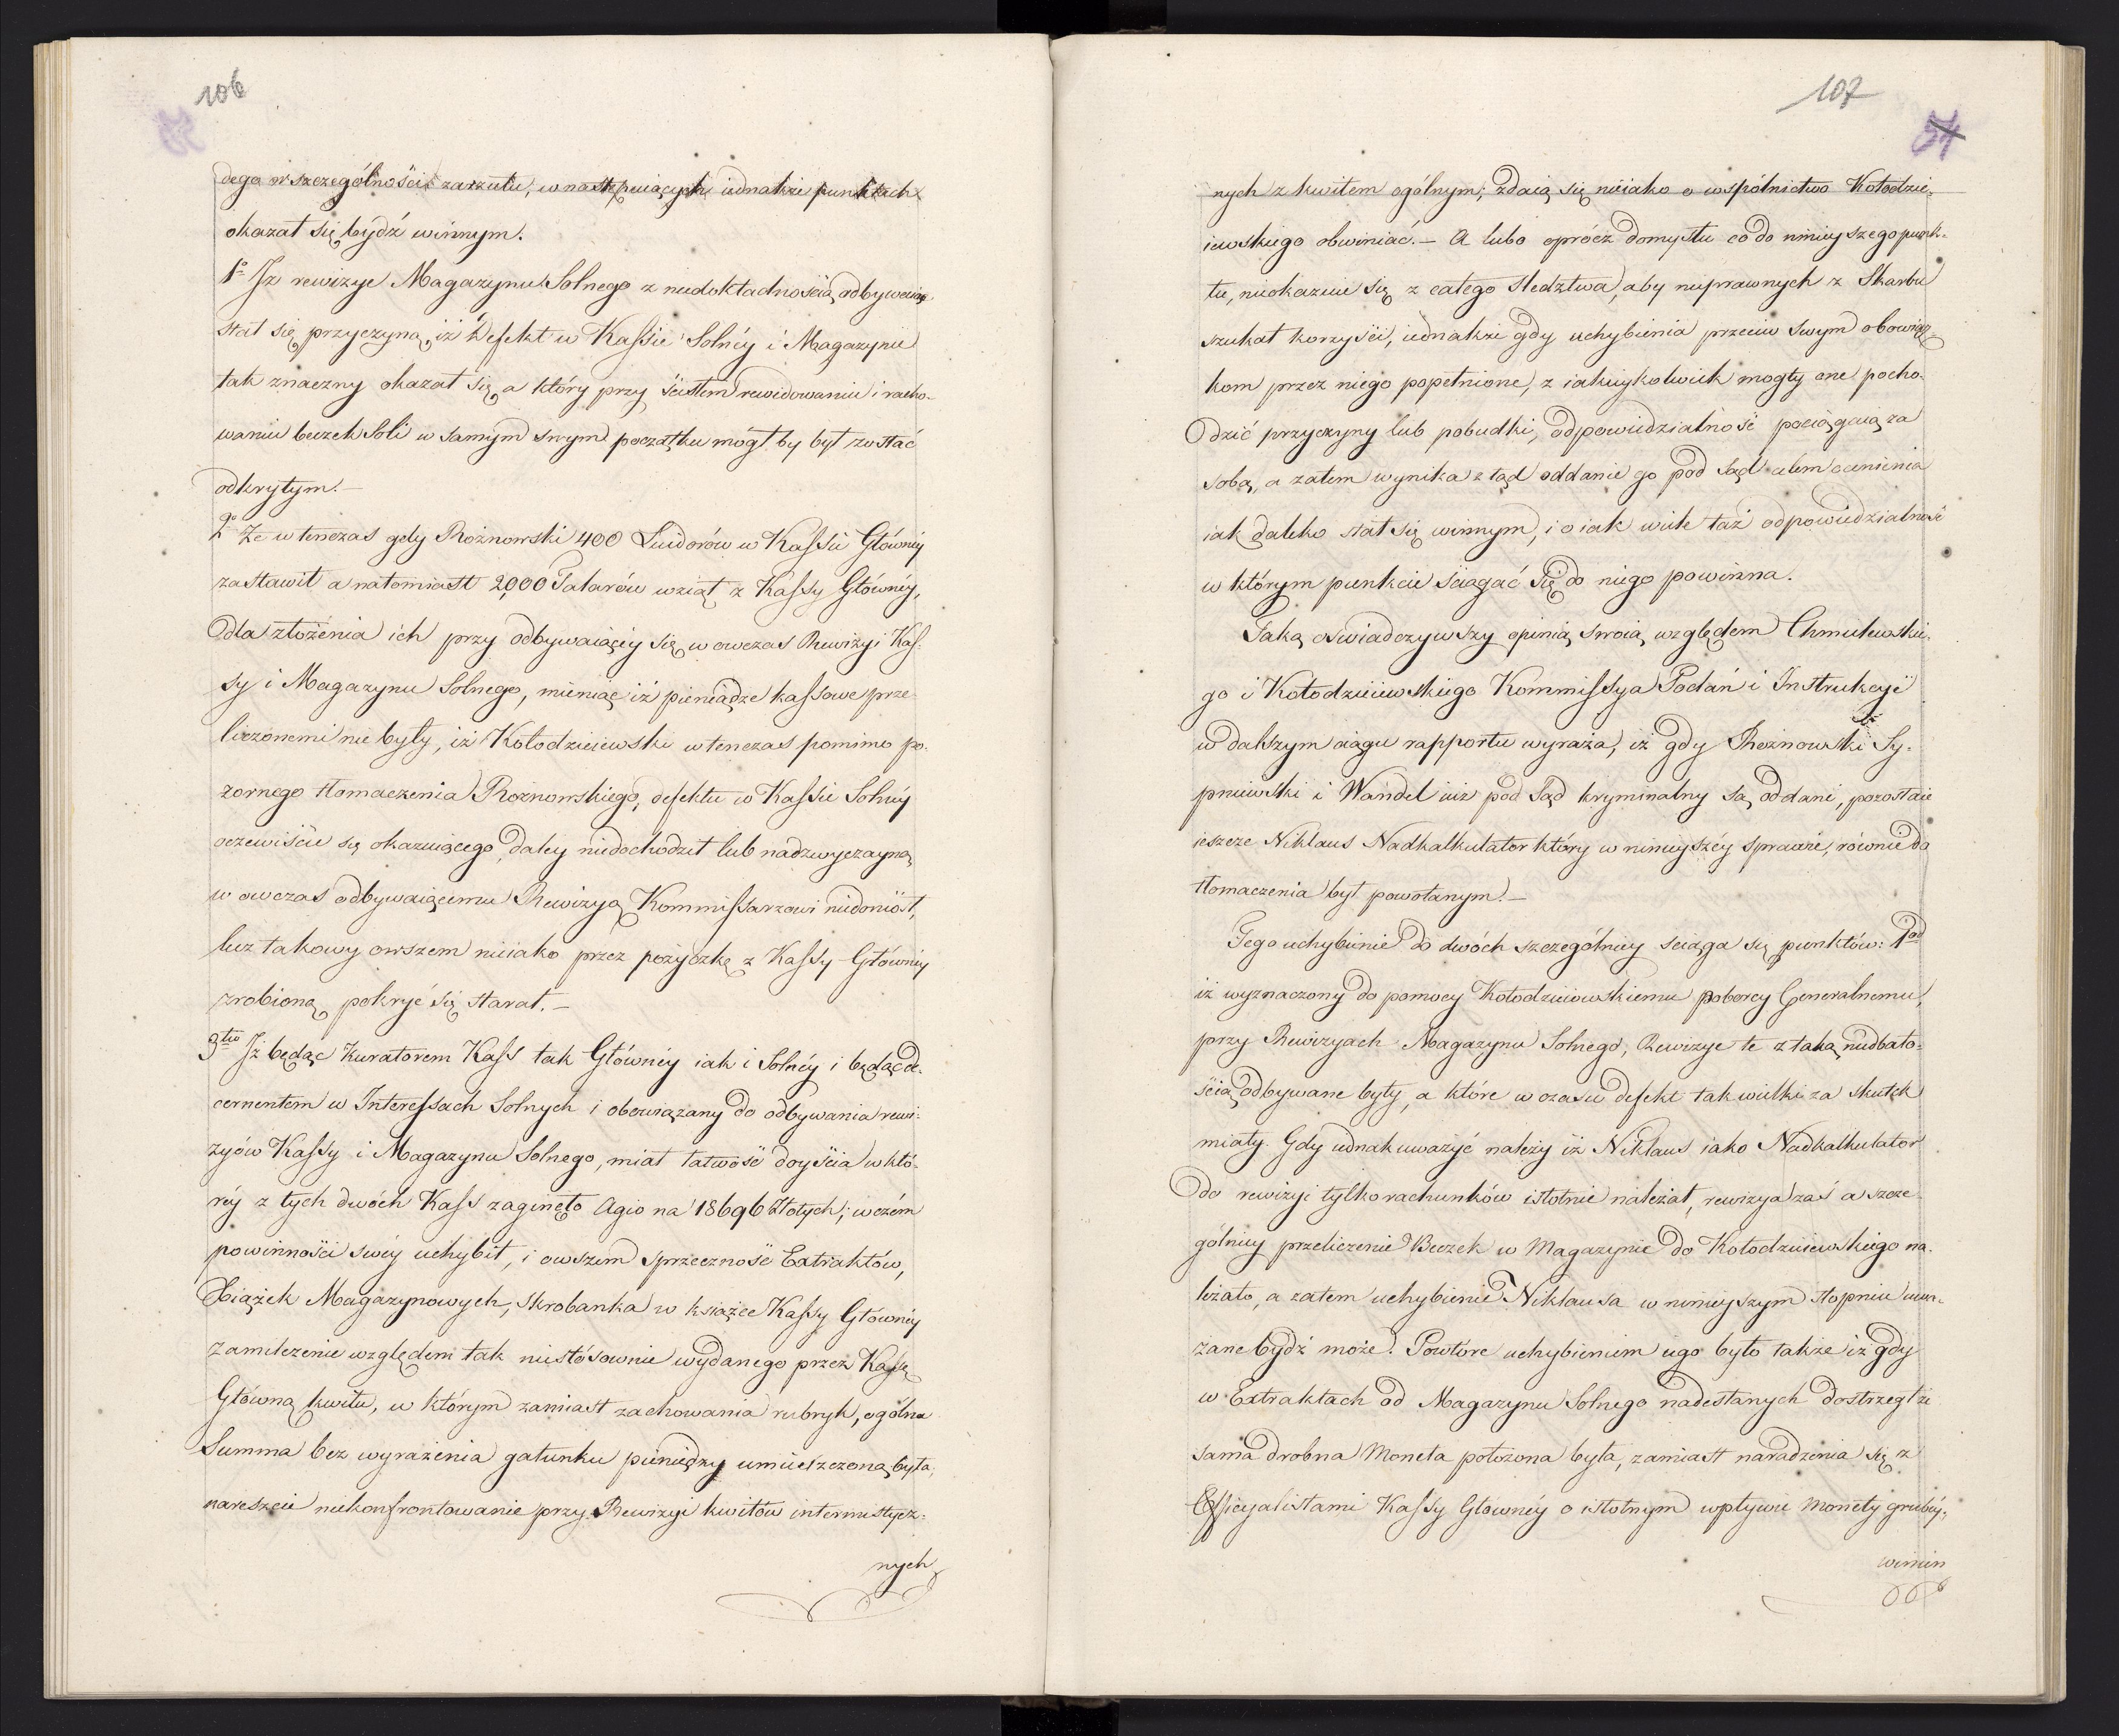 106
dego w szczególności zarzutu, w następuiących iednakże punktach
okazał się bydź winnym.
1o Iż rewizye Magazynu Solnego z niedokładnością odbywaiąc
stał się przyczyną, iż Defekt w Kassie Solnéy i Magazynie
tak znaczny okazał się, a który przy ścisłem rewidowaniu i racho-
waniu beczek Soli w samym swym początku mógł by był zostać
odkrytym.—
2o Że wtenczas gdy Rożnowski 400 Luidorów w Kassie Głównéy
zastawił a natomiast 2,000 Talarów wziął z Kassy Głównéy,
dla złożenia ich przy odbywaiącéy się wowczas Rewizyi Kas-
sy i Magazynu Solnego, mieniąc iż pieniądze kassowe prze
liczonemi nie były, iż Kołodzieiewski wtenczas pomimo po-
zornego tłomaczenia Rożnowskiego, defektu w Kassie Solnéy
oczewiście się okazuiącego, daléy niedochodził lub nadzwyczayną
wowczas odbywaiącemu Rewizyą Kommissarzowi niedoniósł,
lecz takowy owszem nieiako przez pożyczkę z Kassy Głównéy
zrobioną pokryć się starał.—
3tio Iż będąc Kuratorem Kass tak Głównéy iak i Solnéy i będąc de-
cernentem w Interessach Solnych i obowiązany do odbywania rewi-
zyów Kassy i Magazynu Solnego, miał łatwość doyścia w któ-
réy z tych dwóch Kass zaginęło Agio na 18696 Złotych; w czém
powinności swéy uchybił, i owszem sprzeczność Extraktów,
Xiążek Magazynowych, skrobanka w książce Kassy Głównéy
zamilczenie względem tak niestósownie wydanego przez Kassę
Główną kwitu, w którym zamiast zachowania rubryk, ogólna
Summa bez wyrażenia gatunku pieniędzy umieszczoną była,
nareszcie niekonfrontowanie przy Rewizyi kwitów interimistycz-
nych
107
54
nych z kwitem ogólnym; zdaią się nieiako o wspólnictwo Kołodzie-
iewskiego obwiniać.— A lubo oprócz domysłu co do ninieyszego punk-
tu, nieokazuie się z całego śledztwa, aby nieprawnych z Skarbu
szukał korzyści, iednakże gdy uchybienia przeciw swym obowiąz-
kom przez niego popełnione, z iakiéykolwiek mogły one pocho-
dzić przyczyny lub pobudki, odpowiedzialność pociągaią za
sobą, a zatem wynika z tąd oddanie go pod Sąd celem ocenienia
iak daleko stał się winnym, i o iak wiele taż odpowiedzialność
w którym punkcie ściągać się do niego powinna.
Taką oświadczywszy opinią swoią względem Chmielewskie-
go i Kołodzieiewskiego Kommissya Podań i Instrukcyi
w dalszym ciągu rapportu wyraża, iż gdy Rożnowski Sy-
pniewski i Wandel iuż pod Sąd kryminalny są oddani, pozostaie
ieszcze Niklaus Nadkalkulator który w ninieyszéy sprawie, równie do
tłomaczenia był powołanym.—
Tego uchybienie do dwóch szczególniey ściąga się punktów: 1od
iż wyznaczony do pomocy Kołodzieiewskiemu poborcy Generalnemu,
przy Rewizyach Magazynu Solnego, Rewizye te z taką niedbało-
ścią odbywane były, a które w czasie defekt tak wielki za skutek
miały. Gdy iednak uważyć należy iż Niklaus iako Nadkalkulator
do rewizyi tylko rachunków istotnie należał, rewizya zaś a szcze
gólniey przeliczenie Beczek w Magazynie do Kołodzieiewskiego na-
leżało, a zatem uchybienie Niklausa w mnieyszym stopniu uwa-
żane bydź może. Powtóre uchybieniem iego było także iż gdy
w Extraktach od Magazynu Solnego nadesłanych dostrzegł że
sama drobna Moneta położona była, zamiast naradzenia się z
Officyalistami Kassy Głownéy o istotnym wpływie Monety grubéy,
winien